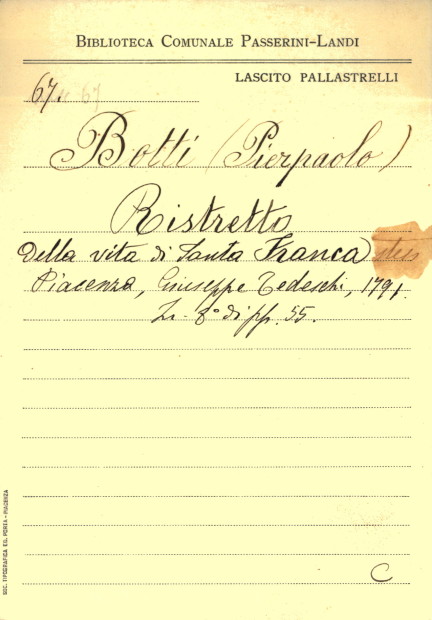 BIBLIOTECA COMUNALE PASSERINI-LANDI
LASCITO PALLASTRELLI
67. 67
Botti (Pierpaolo)
Ristretto
della vita di Santa Franca
Piacenza, Giuseppe Tedeschi, 1791.
In-8° di pp. 55.
C
SOC. TIPOGRAFICA ED. PORTA - PIACENZA